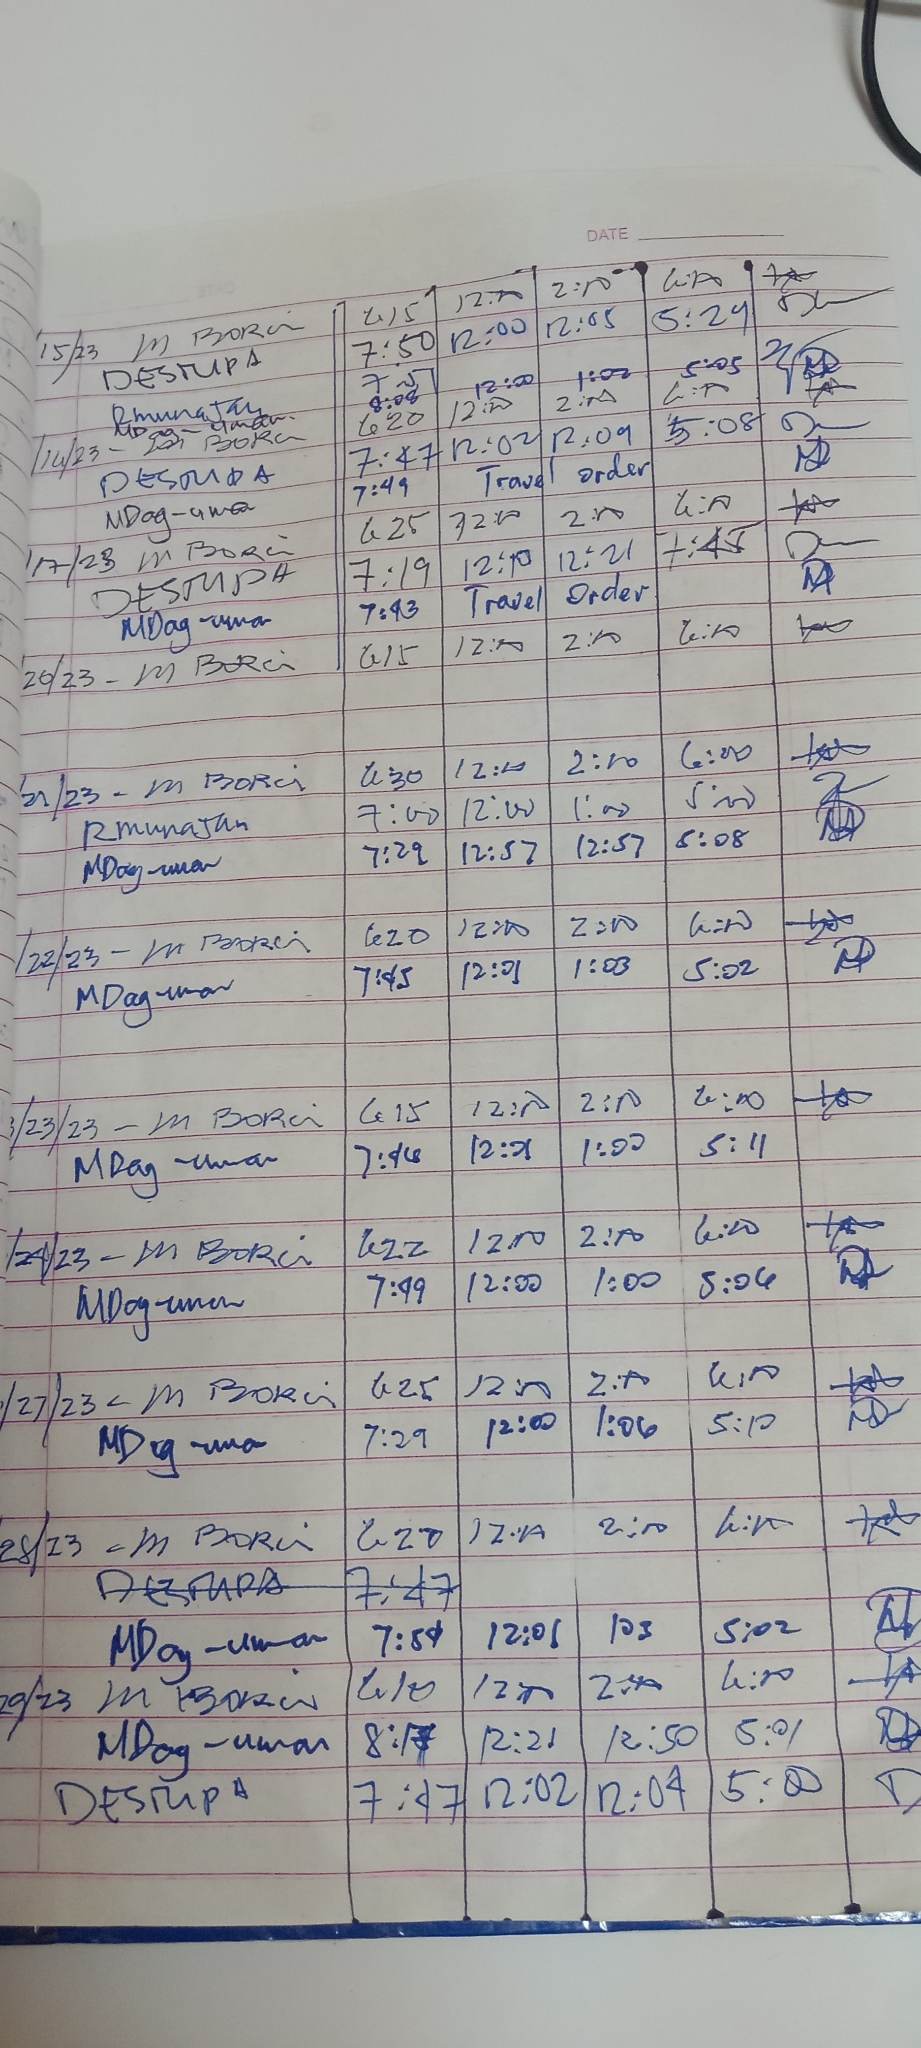 DATE
15/23 M Borci 6:15 12:00 2:00 6:00
DESTUPA 7:50 12:00 12:05 5:29
Rmunatan 7:51
MDag-uman 8:08 12:00 1:02 5:05
/16/23 - M Borci 6:20 12:00 2:00 6:00
DESTUPA 7:47 12:02 12:09 5:08
MDag-uman 7:49 Travel order
/17/23 M Borci 6:25 12:00 2:00 6:00
DESTUPA 7:19 12:10 12:21 7:45
MDag-uman 7:43 Travel Order
20/23 - M Borci 6:15 12:00 2:00 6:00
21/23 - M Borci 6:30 12:00 2:00 6:00
Rmunatan 7:00 12:00 1:00 5:00
MDag-uman 7:29 12:57 12:57 5:08
/22/23 - M Borci 6:20 12:00 2:00 6:00
MDag-uman 7:45 12:01 1:03 5:02
3/23/23 - M Borci 6:15 12:00 2:00 6:00
MDag-uman 7:46 12:01 1:00 5:11
/24/23 - M Borci 6:22 12:00 2:00 6:00
MDag-uman 7:49 12:00 1:00 5:06
/27/23 - M Borci 6:25 12:00 2:00 6:00
MDag-uman 7:29 12:00 1:06 5:10
28/23 - M Borci 6:20 12:00 2:00 6:00
DESTUPA 7:47
MDag-uman 12:01 103 5:02
29/23 M Borci 6:10 12:00 2:00 6:00
MDag-uman 12:21 12:50 5:01
DESTUPA 7:47 12:02 12:04 5:00